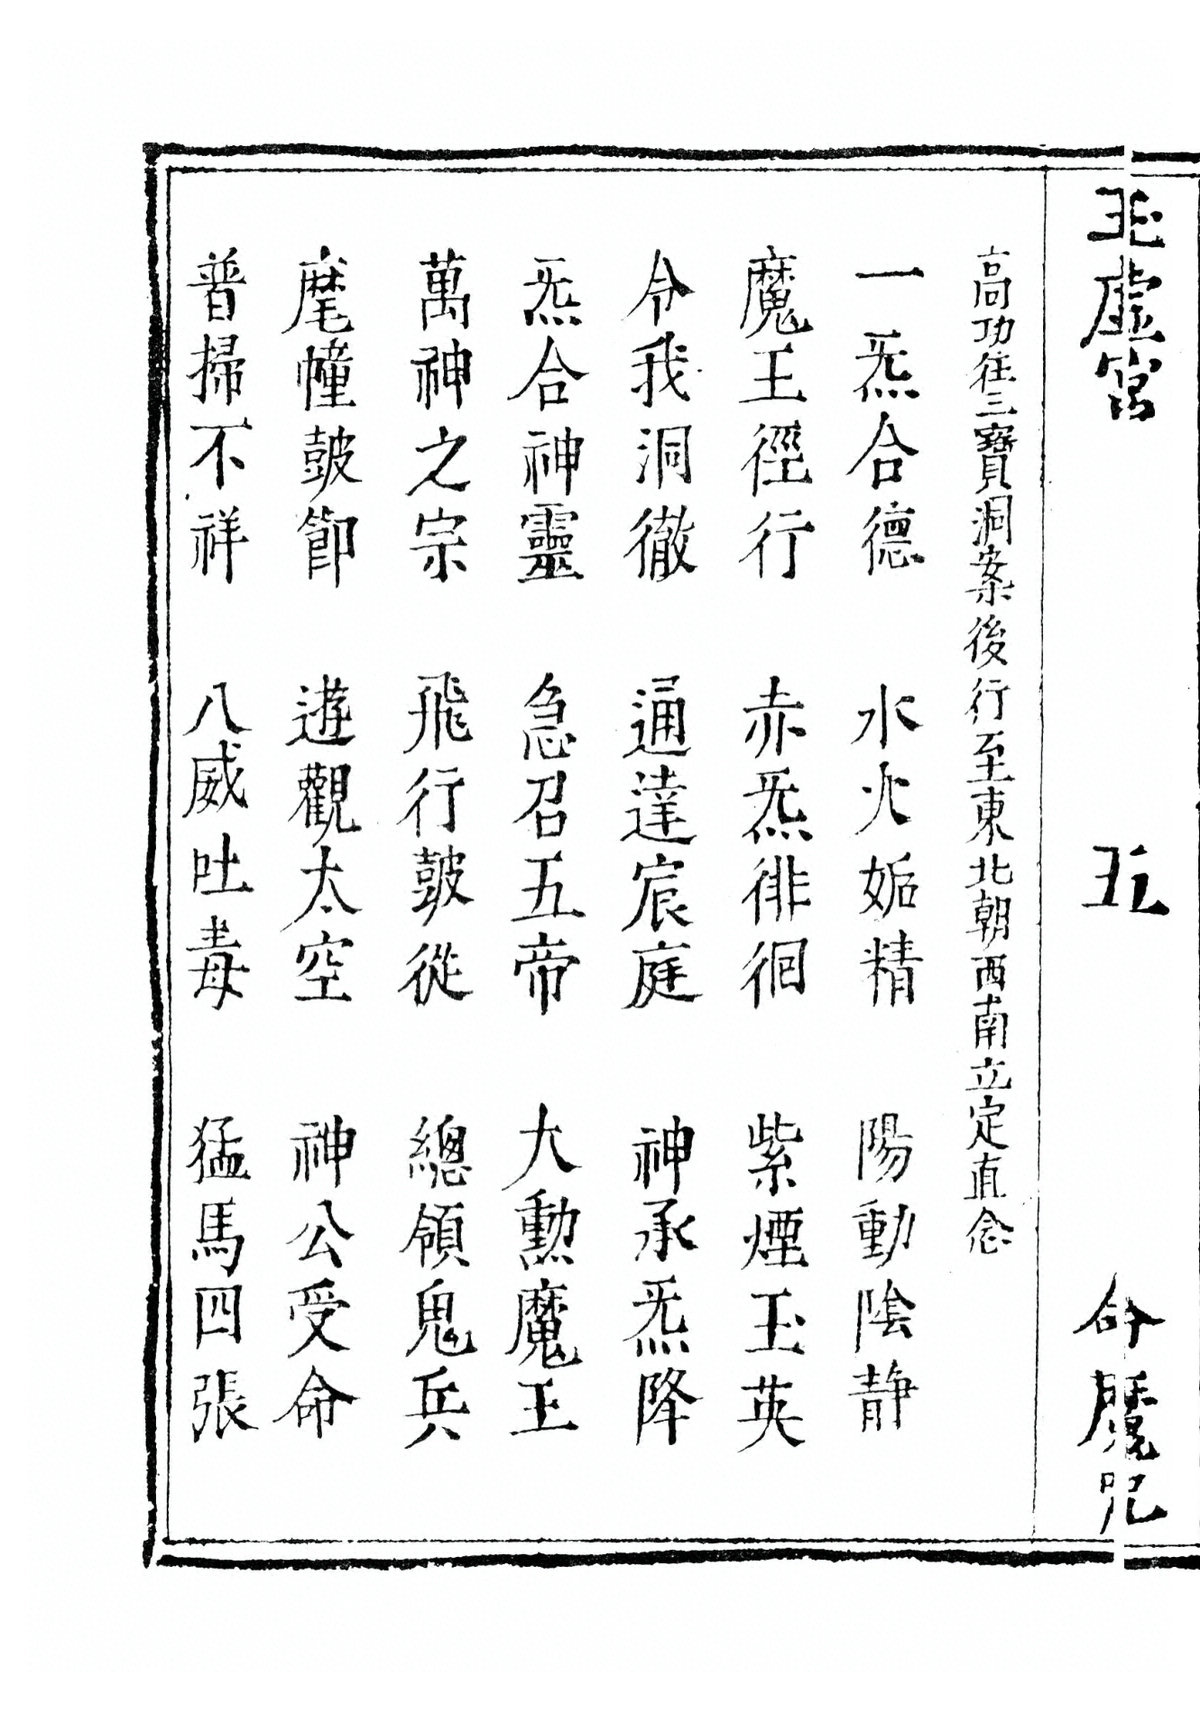 玉虛宮 五 命魔咒
高功往三寶洞案後行至東北朝西南立定直念
一炁合德 水火姤精 陽動陰静
魔王徑行 赤炁徘徊 紫煙玉英
令我洞徹 通達宸庭 神承炁降
炁合神靈 急召五帝 大勲魔王
萬神之宗 飛行皷從 總領鬼兵
麾幢皷節 遊觀太空 神公受命
普掃不祥 八威吐毒 猛馬四張